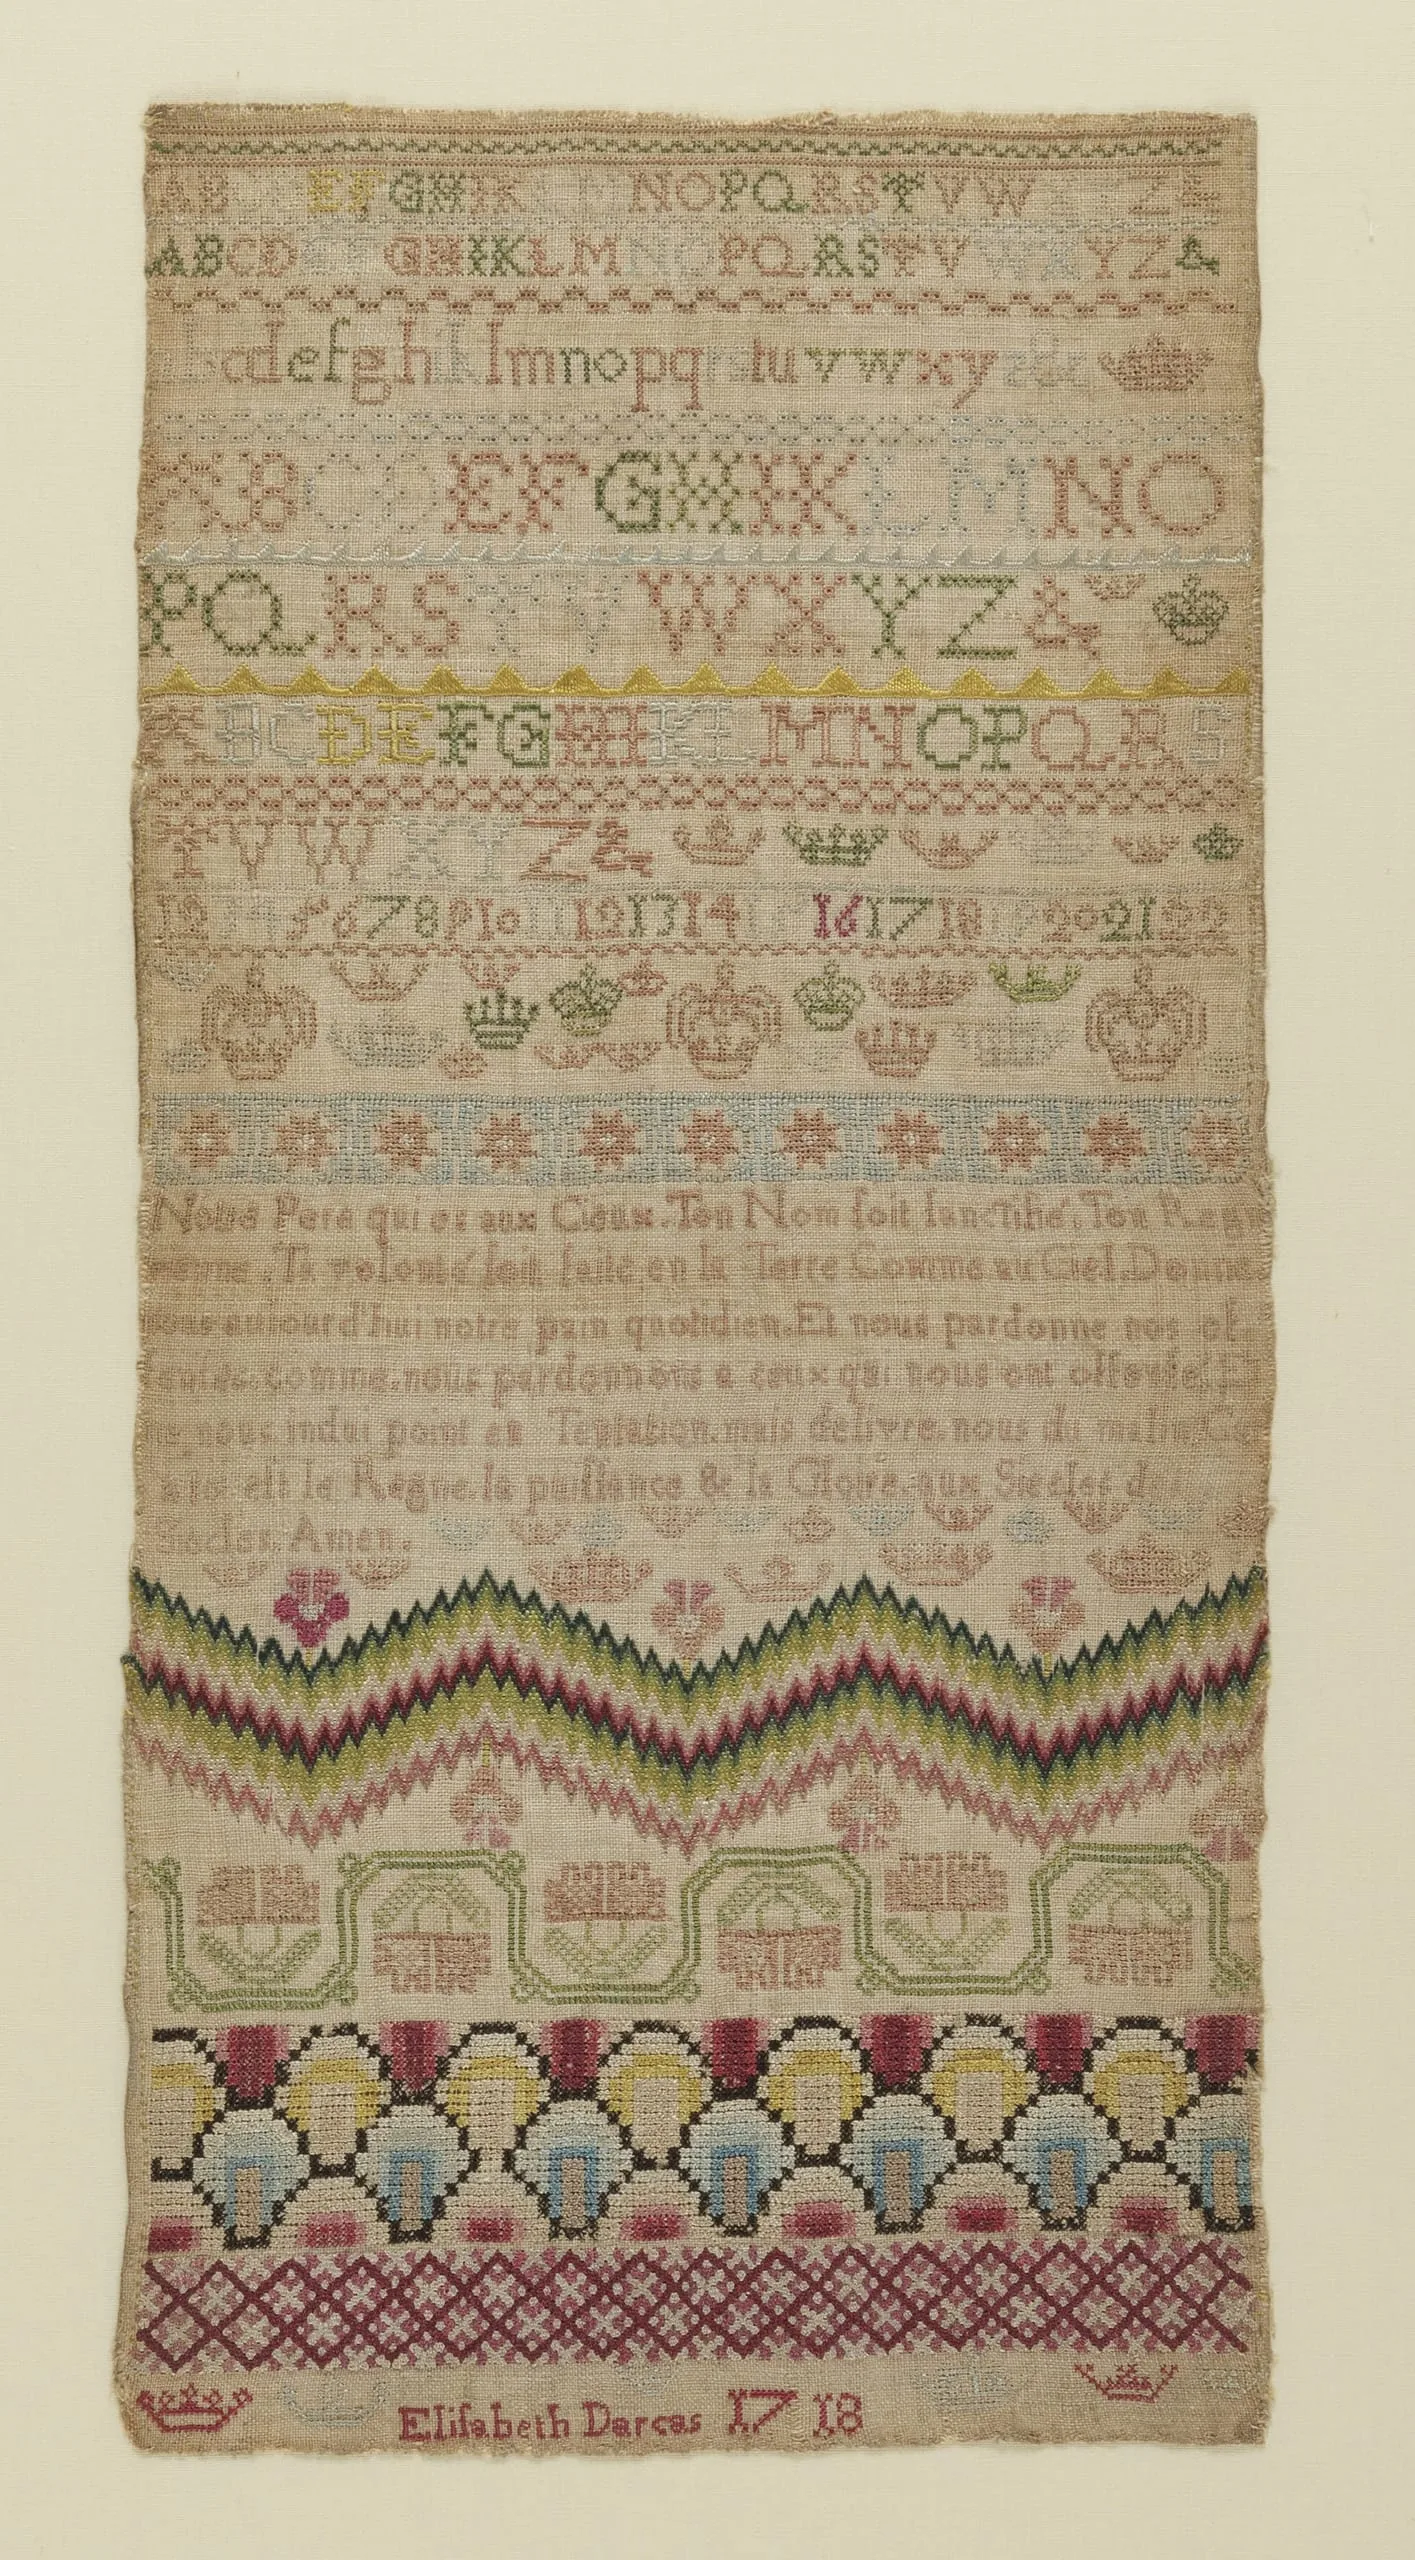 AB EFGHIK M NOPQRSTVW Z&
ABCD GHIKLMNOPQRSTV W YZ&
abcdefghiklmnopq tuvwwxyz&c
ABCDEFGHIKLMNO
PQRSTVWXYZ&
ABCDEFGHIKLMNOPQRS
TVWXYZ&
12 5678910 121314 161718 202122
Notre Pere qui es aux Cieux. Ton Nom ſoit ſanctifié. Ton Regn
Ta volonté ſoit faite en la Terre Comme au Ciel. Donne
nous aujourd'hui notre pain quotidien. Et nous pardonne nos of
comme nous pardonnons a ceux qui nous ont offenſé. Et
ne nous indui point en Tentation. mais delivre. nous du malin. C
a toi eſt le Regne. la puiſſance & la Gloire. aux Siecles d
Siecles. Amen.
Eliſabeth Darcas 1718